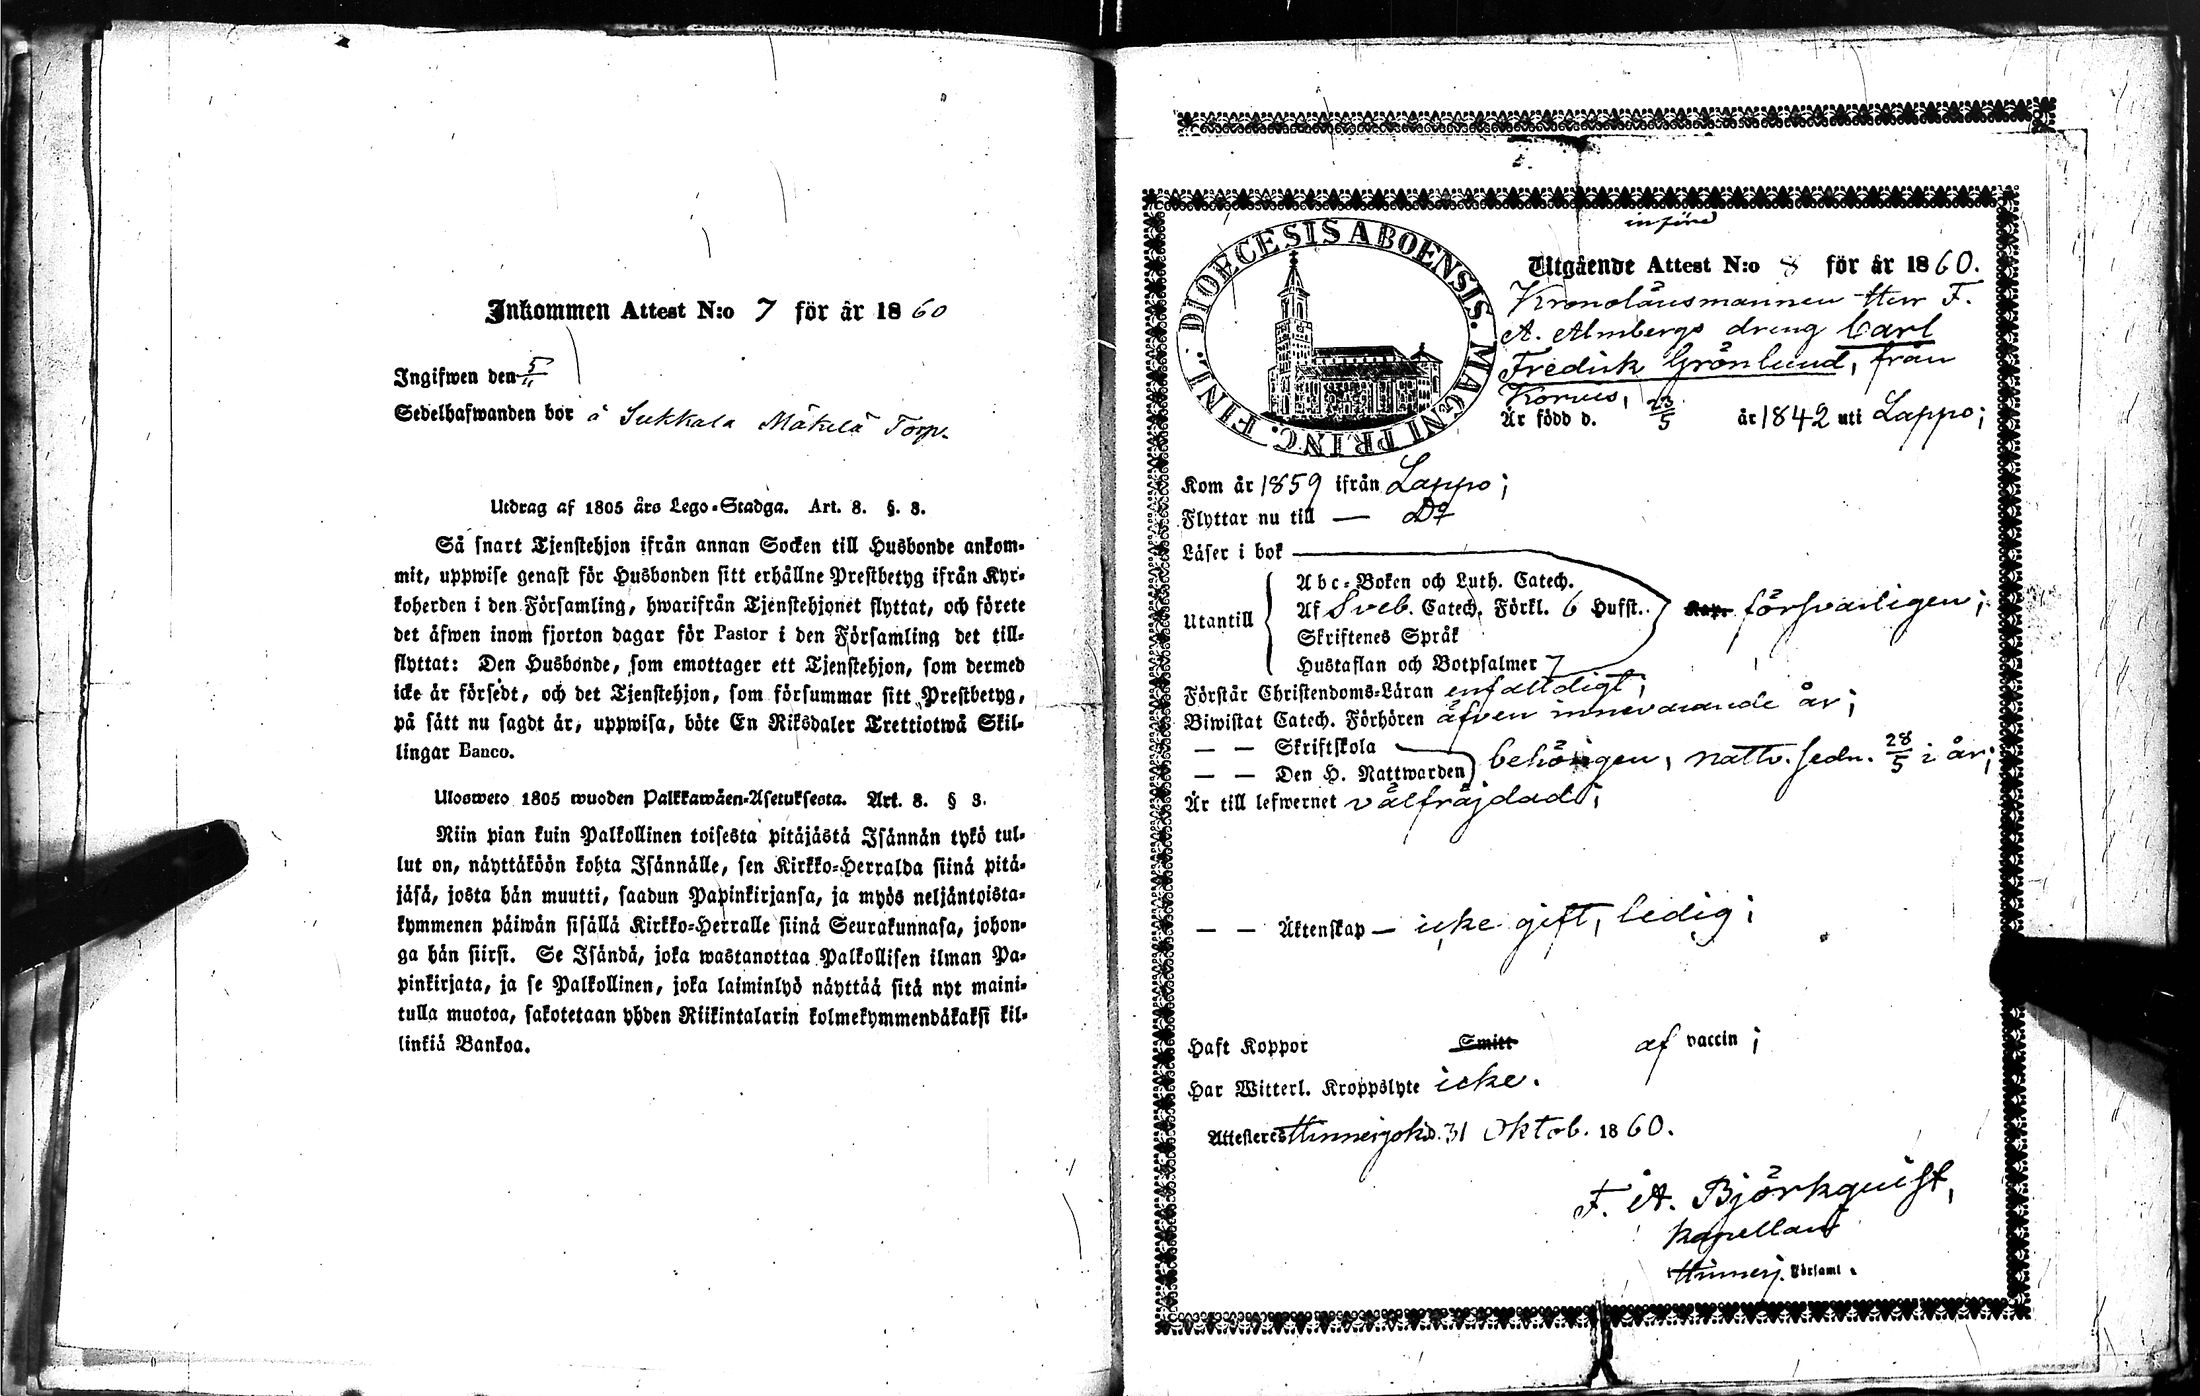 Inkommen Attest N:o 7 för år 1860
Ingifwen den 5/11
Sedelhafwanden bor å Sukkala Mäkelä Torp.
Utdrag af 1805 års Lego-Stadga. Art. 8. §. 3.
Så snart Tjenstehjon ifrån annan Socken till Husbonde ankom-
mit, uppwise genast för Husbonden sitt erhållne Prestbetyg ifrån Kyr-
koherden i den Församling, hwarifrån Tjenstehjonet flyttat, och förete
det äfwen inom fjorton dagar för Pastor i den Församling det till-
flyttat: Den Husbonde, som emottager ett Tjenstehjon, som dermed
icke är försedt, och det Tjenstehjon, som försummar sitt Prestbetyg,
på sätt nu sagdt är, uppwisa, böte En Riksdaler Trettiotwå Skil-
lingar Banco.
Ulosweto 1805 wuoden Palkkawäen-Asetuksesta. Art. 8. § 3.
Niin pian kuin Palkollinen toisesta pitäjästä Isännän tykö tul-
lut on, näyttäköön kohta Isännälle, sen Kirkko-Herralda siinä pitä-
jäsä, josta hän muutti, saadun Papinkirjansa, ja myös neljäntoista-
kymmenen päiwän sisällä Kirkko-Herralle siinä Seurakunnasa, johon-
ga hän siirsi. Se Isändä, joka wastanottaa Palkollisen ilman Pa-
pinkirjata, ja se Palkollinen, joka laiminlyö näyttää sitä nyt maini-
tulla muotoa, sakotetaan yhden Riikintalarin kolmekymmendäkaksi kil-
linkiä Bankoa.
införd
DIOECESIS ABOENSIS. MAGNI PRINC. FINL.
Utgående Attest N:o 8 för år 1860.
Kronolänsmannen Herr F.
A. Almbergs dräng Carl
Fredrik Grönlund, från
Korvis,
Är född d. 23/5 år 1842 uti Lappo;
Kom år 1859 ifrån Lappo;
Flyttar nu till — Do
Läser i bok
Abc-Boken och Luth. Catech.
Utantill Af Sveb. Catech. Förkl. 6 Hufst. Kap. försvarligen;
Skriftenes Språk
Hustaflan och Botpsalmer 7
Förstår Christendoms-Läran enfaldigt;
Biwistat Catech. Förhören äfven innevarande år;
— — Skriftskola
— — Den H. Nattwarden behörigen, nattv. sedn. 28/5 i år;
Är till lefwernet välfräjdad;
— — Äktenskap — icke gift, ledig;
Haft Koppor Smitt af vaccin;
Har Witterl. Kroppslyte icke.
Attesteres Hinnerjoki d. 31 Oktob. 1860.
F. A. Björkquist,
Kapellan i
Hinnerj. Församl.